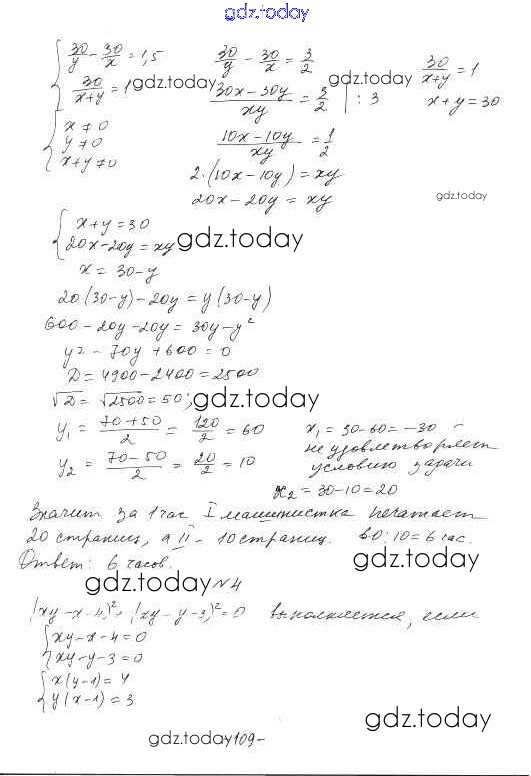 gdz.today
30/y - 30/x = 1,5
30/(x+y) = 1
x ≠ 0
y ≠ 0
x+y ≠ 0
30/y - 30/x = 3/2
(30x-30y)/xy = 3/2 | : 3
(10x-10y)/xy = 1/2
2·(10x-10y) = xy
20x-20y = xy
30/(x+y) = 1
x+y = 30
gdz.today
gdz.today
gdz.today
x+y = 30
20x-20y = xy
gdz.today
x = 30-y
20(30-y)-20y = y(30-y)
600-20y-20y = 30y-y²
y²-70y+600 = 0
D = 4900-2400 = 2500
√D = √2500 = 50;
gdz.today
y₁ = (70+50)/2 = 120/2 = 60
y₂ = (70-50)/2 = 20/2 = 10
x₁ = 30-60 = -30 -
не удовлетворяет
условию задачи
x₂ = 30-10 = 20
Значит за 1 час I машинистка печатает
20 страниц, а II - 10 страниц. 60:10 = 6 час.
Ответ: 6 часов.
gdz.today
№4
(xy-x-4)²+(xy-y-3)² = 0 выполняется, если
xy-x-4 = 0
xy-y-3 = 0
x(y-1) = 4
y(x-1) = 3
gdz.today
gdz.today
109-